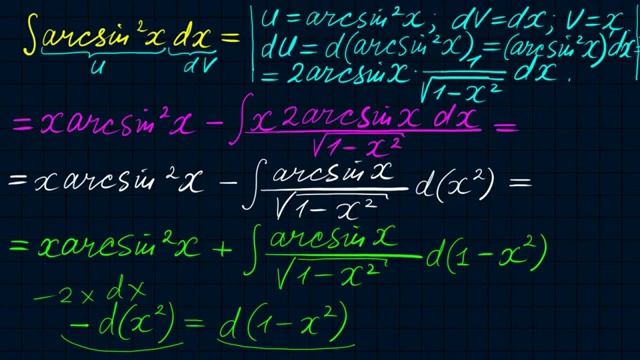 ∫ arcsin²x dx = | u = arcsin²x; dV = dx; V = x
u dV
dU = d(arcsin²x) = (arcsin²x)dx =
= 2arcsin x · 1/√(1-x²) dx. |
= x arcsin²x - ∫ (x 2arcsin x dx)/√(1-x²) =
= x arcsin²x - ∫ arcsin x/√(1-x²) d(x²) =
= x arcsin²x + ∫ arcsin x/√(1-x²) d(1-x²)
-2x dx
-d(x²) = d(1-x²)